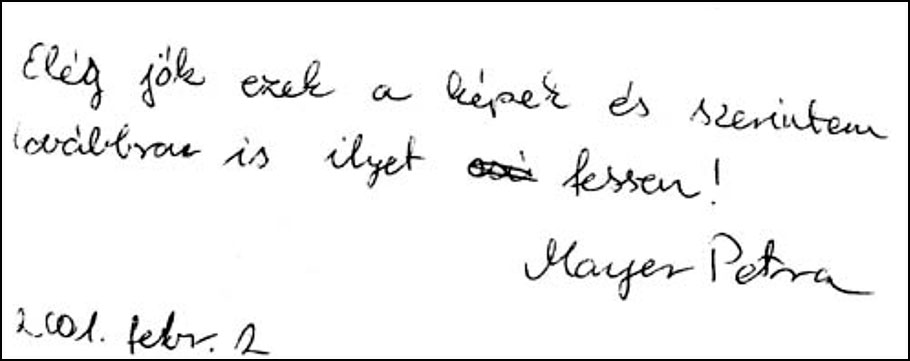 Elég jók ezek a képek és szerintem
továbbra is ilyet fessen!
Mayer Petra
2001. febr. 2